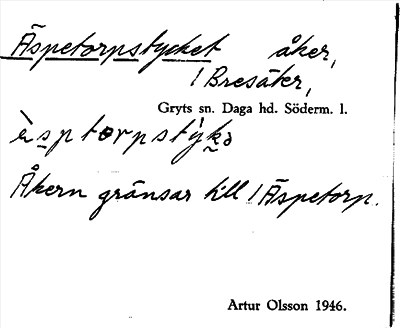 Äspetorpstycket åker,
/Bresäter,
Gryts sn. Daga hd. Söderm. l.
Åkern gränsar till /Äspetorp.
Artur Olsson 1946.